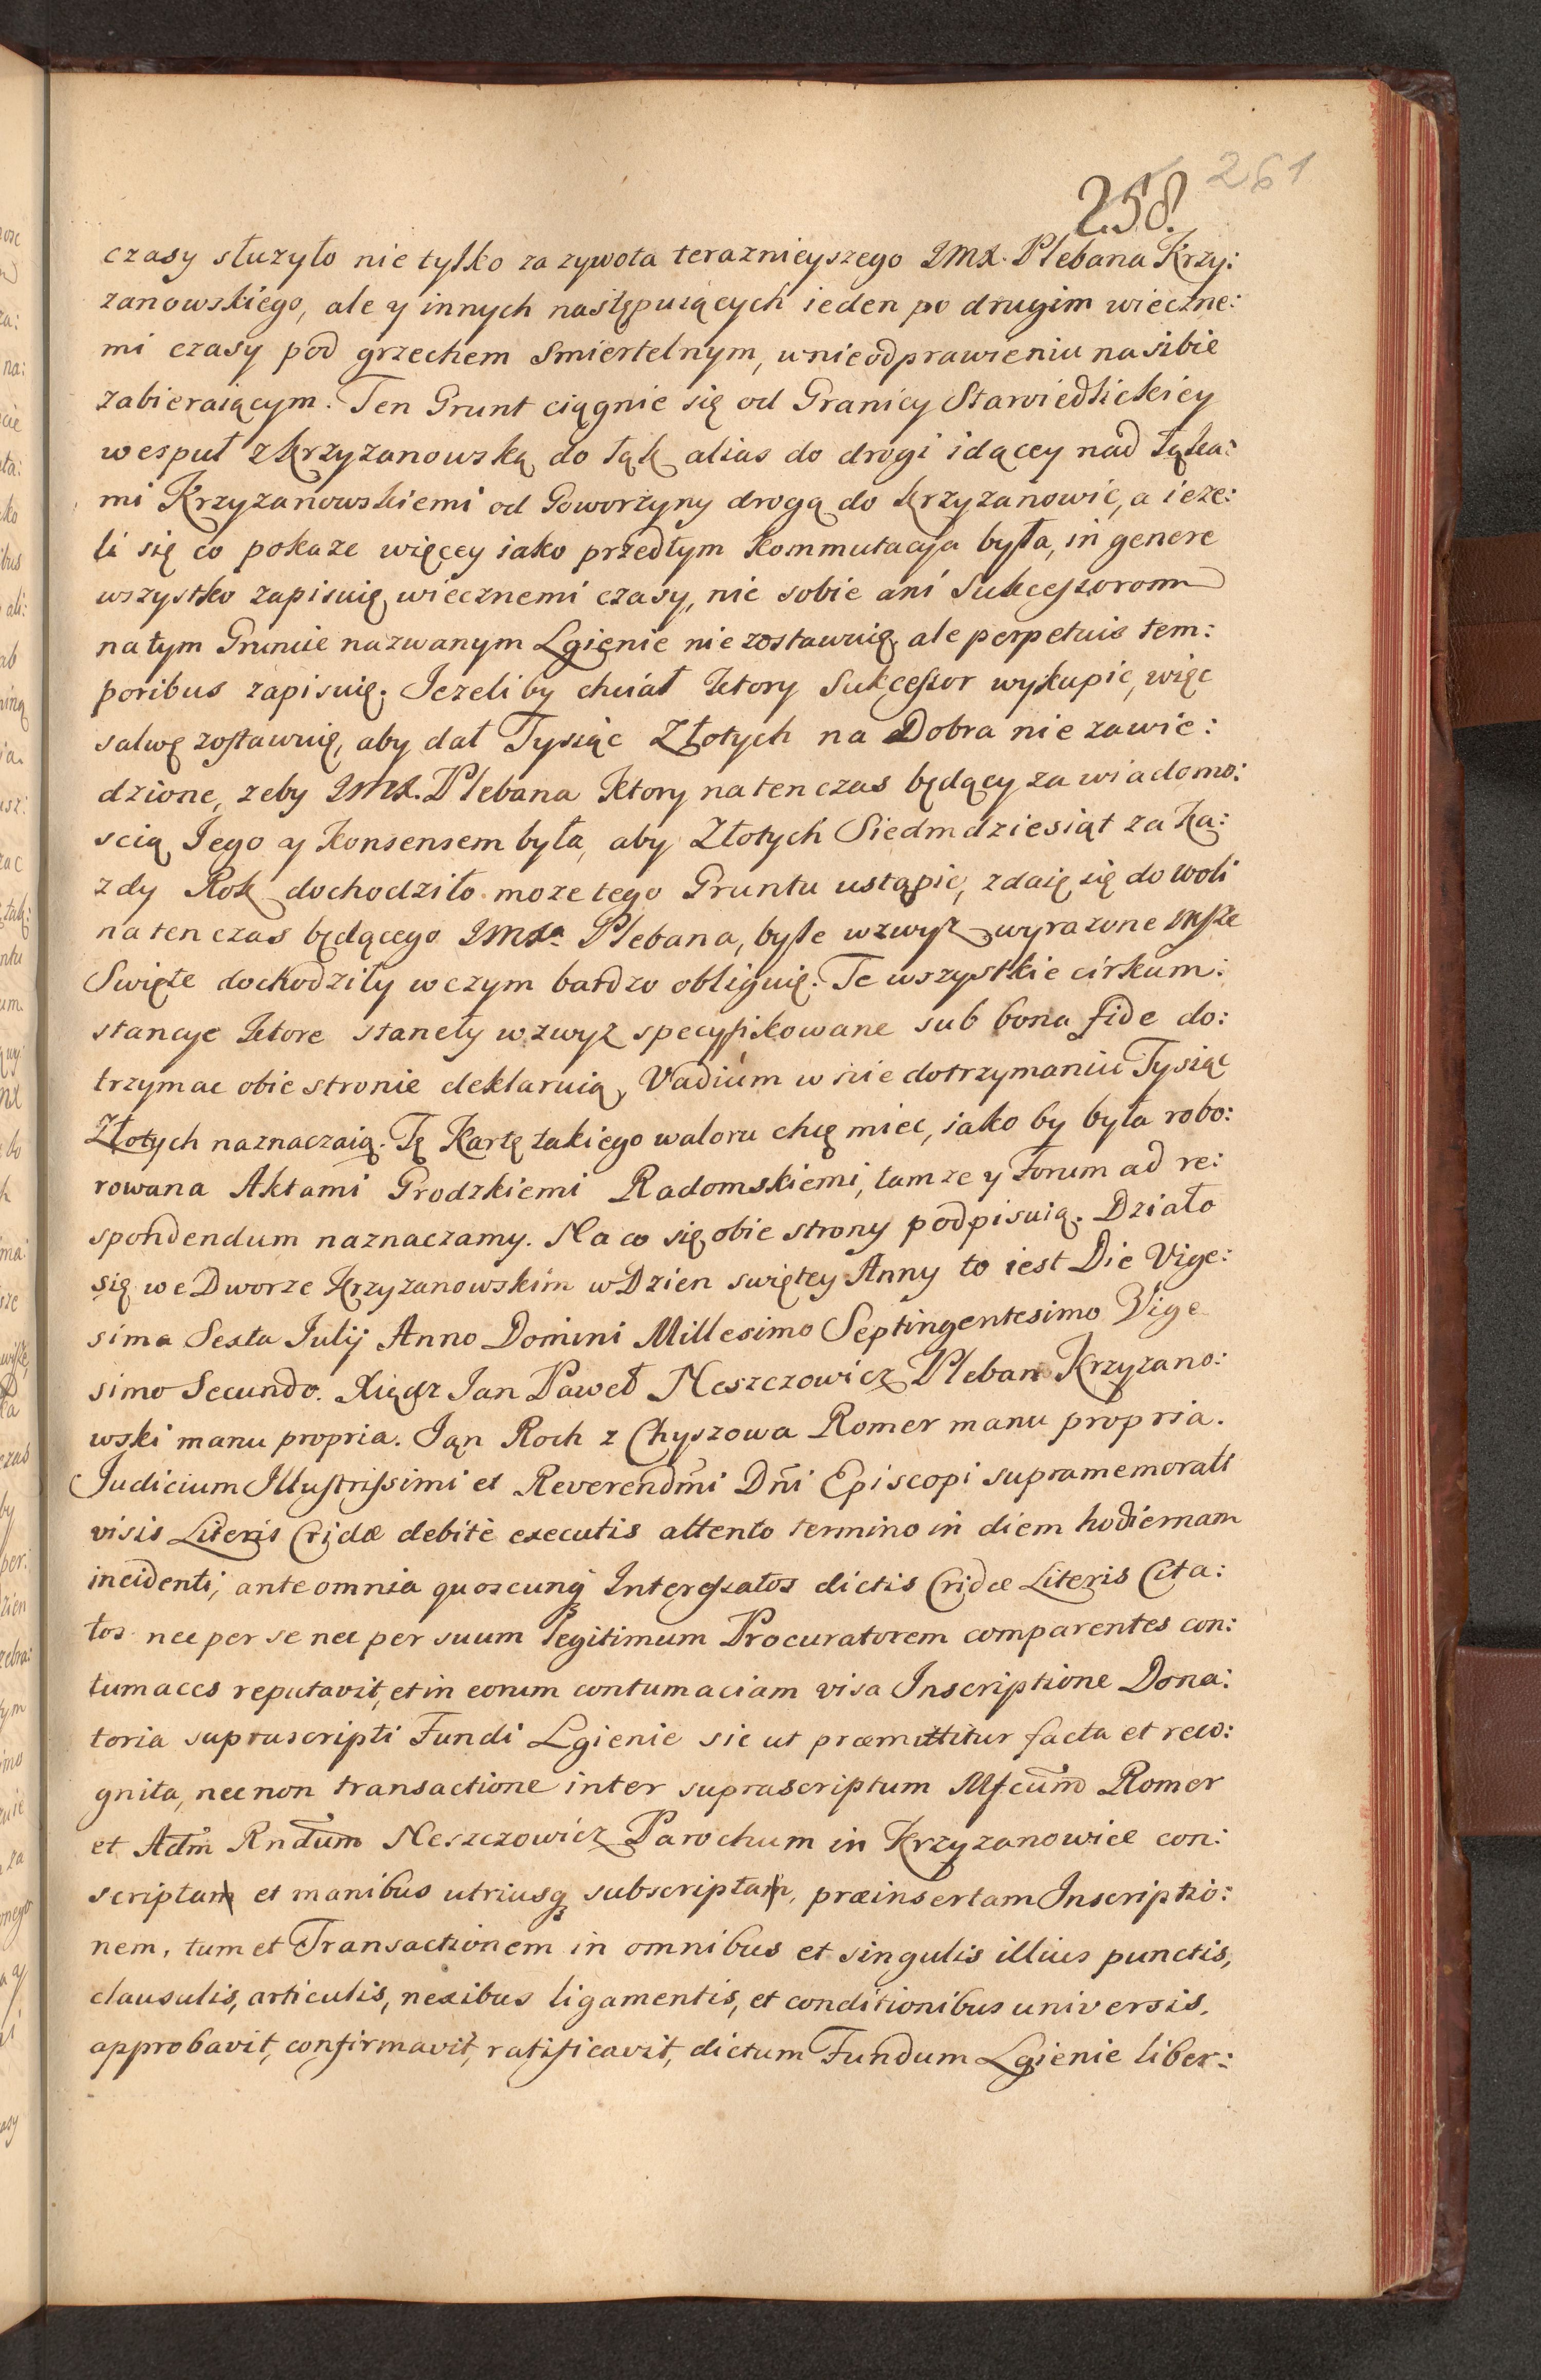 261
258.
czasy służyło nie tylko za zywota teraznieyszego JMX. Plebana Krzy:
zanowskiego, ale y innych następuiących ieden po drugim wieczne:
mi czasy pod grzechem smiertelnym, w nieodprawieniu na sibie
zabieraiącym. Ten Grunt ciągnie się od Granicy Starwiedlickiey
wespuł z Krzyzanowską do łąk alias do drogi idącey nad łąka:
mi Krzyzanowskiemi od Goworzyny drogą do Krzyzanowic, a ieze:
li się co pokaze więcey iako przedtym Kommutacya była, in genere
wszystko zapisuię wiecznemi czasy, nic sobie ani Sukcessorom
na tym Gruncie nazwanym Lgienie nie zostawuię, ale perpetuis tem:
poribus zapisuię. Jezeliby chciał ktory Sukcessor wykupic, więc
salwę zostawuię, aby dał Tysiąc Złotych na Dobra nie zawie:
dzione, zeby JMX. Plebana ktory na ten czas będący za wiadomo:
scią Jego y Konsensem była, aby Złotych Siedmdziesiąt za Ka:
zdy Rok dochodziło moze tego Gruntu ustąpic, zdaię się do woli
na ten czas będącego JMXa Plebana, byle wzwyż wyrazone Msze
Swięte dochodziły w czym bardzo obliguię. Te wszystkie cirkum:
stancye ktore staneły wzwyż specyfikowane sub bona fide do:
trzymac obie stronie deklaruią, Vadium w nie dotrzymaniu Tysiąc
Złotych naznaczaią. Tę Kartę takiego waloru chcę miec, iako by była robo:
rowana Aktami Grodzkiemi Radomskiemi, tamze y Forum ad re:
spondendum naznaczamy. Na co się obie strony podpisuią. Działo
się we Dworze Krzyzanowskim w Dzien swiętey Anny to iest Die Vige:
sima Sexta Julij Anno Domini Millesimo Septingentesimo Vige
simo Secundo. Xiądz Jan Paweł Neszczowicz Pleban Krzyzano:
wski manu propria. Jan Roch z Chyszowa Romer manu propria.
Judicium Illustrissimi et Reverendmi Dni Episcopi supramemorati
visis Literis Cridæ debitè executis attento termino in diem hodiernam
incidenti, ante omnia quoscunq Interessatos dictis Cridæ Literis Cita:
tos nec per se nec per suum legitimum Procuratorem comparentes con:
tumaces reputavit, et in eorum contumaciam visa Inscriptione Dona:
toria suprascripti Fundi Lgienie sic ut præmittitur facta et reco:
gnita, nec non transactione inter suprascriptum Mfcum Romer
et Adm Rndum Neszczowicz Parochum in Krzyzanowice con:
scriptam et manibus utriusq subscriptam, præinsertam Inscriptio:
nem, tum et Transactionem in omnibus et singulis illius punctis,
clausulis, articulis, nexibus ligamentis, et conditionibus universis,
approbavit, confirmavit, ratificavit, dictum Fundum Lgienie liber: